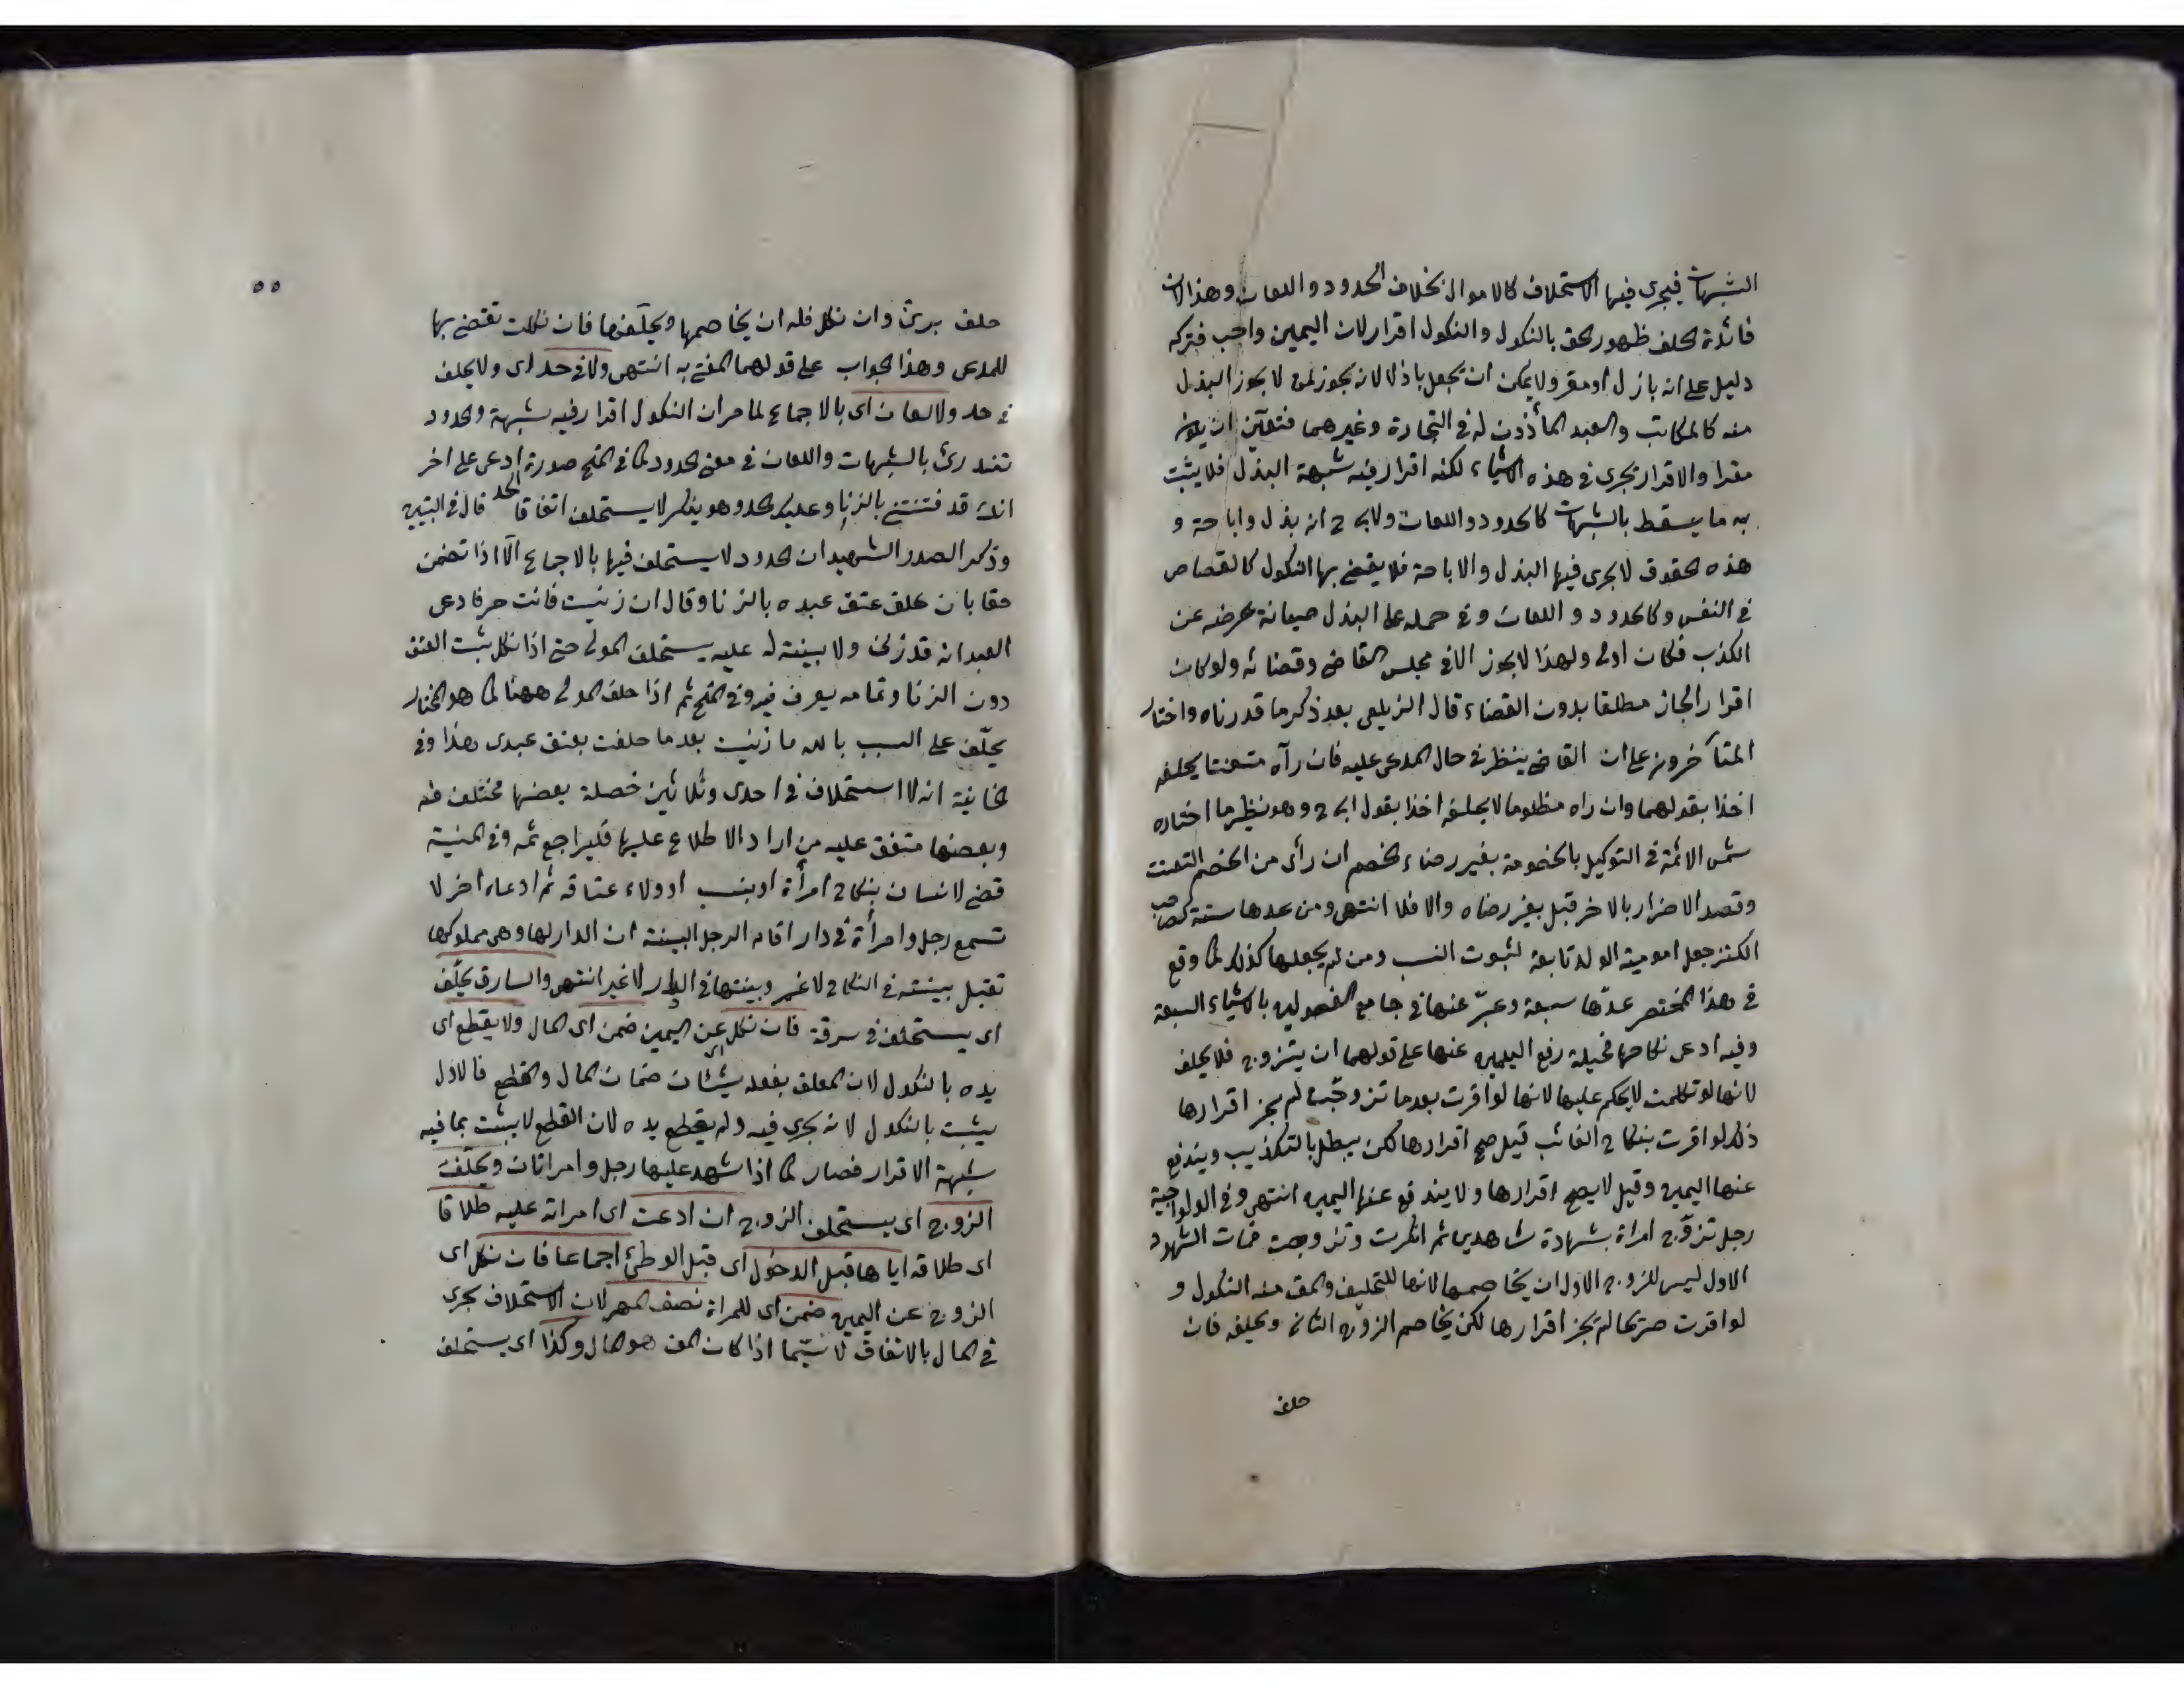 الشبهات فيجرى فيها الاستحلاف كالاموال بخلاف الحدود واللعان وهذا لان
فائدة الحلف ظهور الحق بالنكول والنكول اقرار لان اليمين واجب فتركه
دليل على انه باذل او مقر ولا يمكن ان يجعل باذلا لانه يجوز لمن لا يجوز البذل
منه كالمكاتب والعبد المأذون له فى التجارة وغيرهما فتعين ان يكون
مقرا والاقرار يجرى فى هذه الاشياء لكنه اقرار فيه شبهة البذل فلا يثبت
به ما يسقط بالشبهات كالحدود واللعان ولابى ح انه بذل واباحة و
هذه الحقوق لا يجرى فيها البذل والاباحة فلا يقضى بها النكول كالقصاص
فى النفس وكالحدود واللعان وفى حمله على البذل صيانة عرضه عن
الكذب فكان اولى ولهذا لا يجوز الا فى مجلس القاضى وقضائه ولو كان
اقرارا لجاز مطلقا بدون القضاء قال الزيلعى بعد ذكر ما قدرناه واختار
المتأخرون على ان القاضى ينظر فى حال المدعى عليه فان رآه متعنتا يحلفه
اخذا بقولهما وان راه مظلوما لا يحلفه اخذا بقول ابى ح وهو نظير ما اختاره
شمس الائمة فى التوكيل بالخصومة بغير رضاء الخصم ان رأى من الخصم التعنت
وقصد الاضرار بالاخر قبل بغير رضاه والا فلا انتهى ومن عدها ستة كصاحب
الكنز جعل امومية الولد تابعة لثبوت النسب ومن لم يجعلها كذلك كما وقع
فى هذا المختصر عدّها سبعة وعبّر عنها فى جامع الفصولين بالاشياء السبعة
وفيه ادعى نكاحها فحيلة رفع اليمين عنها على قولهما ان يتزوج فلا يحلف
لانها لو نكلت لا يحكم عليها لانها لو اقرت بعدما تزوجت لم يجز اقرارها
ذلك لو اقرت بنكاح الغائب قيل صح اقرارها لكن يبطل بالتكذيب ويندفع
عنها اليمين وقيل لا يصح اقرارها ولا يندفع عنها اليمين انتهى وفى الولوالجية
رجل تزوّج امراة بشهادة شاهدين ثم انكرت وتزوجت فمات الشهود
الاول ليس للزوج الاول ان يخاصمها لانها للتحليف والمق منه النكول و
لو اقرت صريحا لم يجز اقرارها لكن يخاصم الزوج الثانى ويحلفه فان
حلف
٥٥
حلف برئ وان نكل فله ان يخاصمها ويحلّفها فان نكلت تقضى بها
للمدعى وهذا الجواب على قولهما المفتى به انتهى ولا فى حد اى ولا يحلف
فى حد ولا لعان اى بالاجماع لما مر ان النكول اقرار فيه شبهة والحدود
تندرئ بالشبهات واللعان فى معنى الحدود كما فى المنح صورة ادعى على اخر
انك قد قذفتنى بالزنا وعليك الحد وهو ينكر لا يستحلف اتفاقا قال فى التبيين
وذكر الصدر الشهيد ان الحدود لا يستحلف فيها بالاجماع الّا اذا تضمن
حقا بان علق عتق عبده بالزنا وقال ان زنيت فانت حر فادعى
العبد انه قد زنى ولا بينة له عليه يستحلف المولى حتى اذا نكل ثبت العتق
دون الزنا وتمامه يعرف فيه وفى المنح ثم اذا حلف المولى ههنا كما هو المختار
يحلّف على السبب بالله ما زنيت بعدما حلفت بعتق عبدى هذا وفى
الخانية انه لا استحلاف فى احدى وثلاثين خصلة بعضها مختلف فيه
وبعضها متفق عليه من اراد الاطلاع عليها فليراجع ثمه وفى المنية
قضى لانسان بنكاح امرأة او بنسب او ولاء عتاقه ثم ادعاه اخر لا
تسمع رجل وامرأة فى دار اقام الرجل البينة ان الدار لها وهى مملوكها
تقبل بينته فى النكاح لا غير وبينتها فى الدار لا غير انتهى والسارق يحلّف
اى يستحلف فى سرقة فان نكل عن اليمين ضمن اى المال ولا يقطع اى
يده بالنكول لان المعلق بفعله شيئان ضمان المال والقطع فالاول
يثبت بالنكول لانه يجرى فيه ولم يقطع يده لان القطع لا يثبت بما فيه
شبهة الاقرار فصار كما اذا شهد عليها رجل وامراتان ويحلّف
الزوج اى يستحلف الزوج ان ادعت اى امراته عليه طلاقا
اى طلاقه اياها قبل الدخول اى قبل الوطئ اجماعا فان نكل اى
الزوج عن اليمين ضمن اى للمراة نصف المهر لان الاستحلاف يجرى
فى المال بالاتفاق لا سيّما اذا كان المق هو المال وكذا اى يستحلف